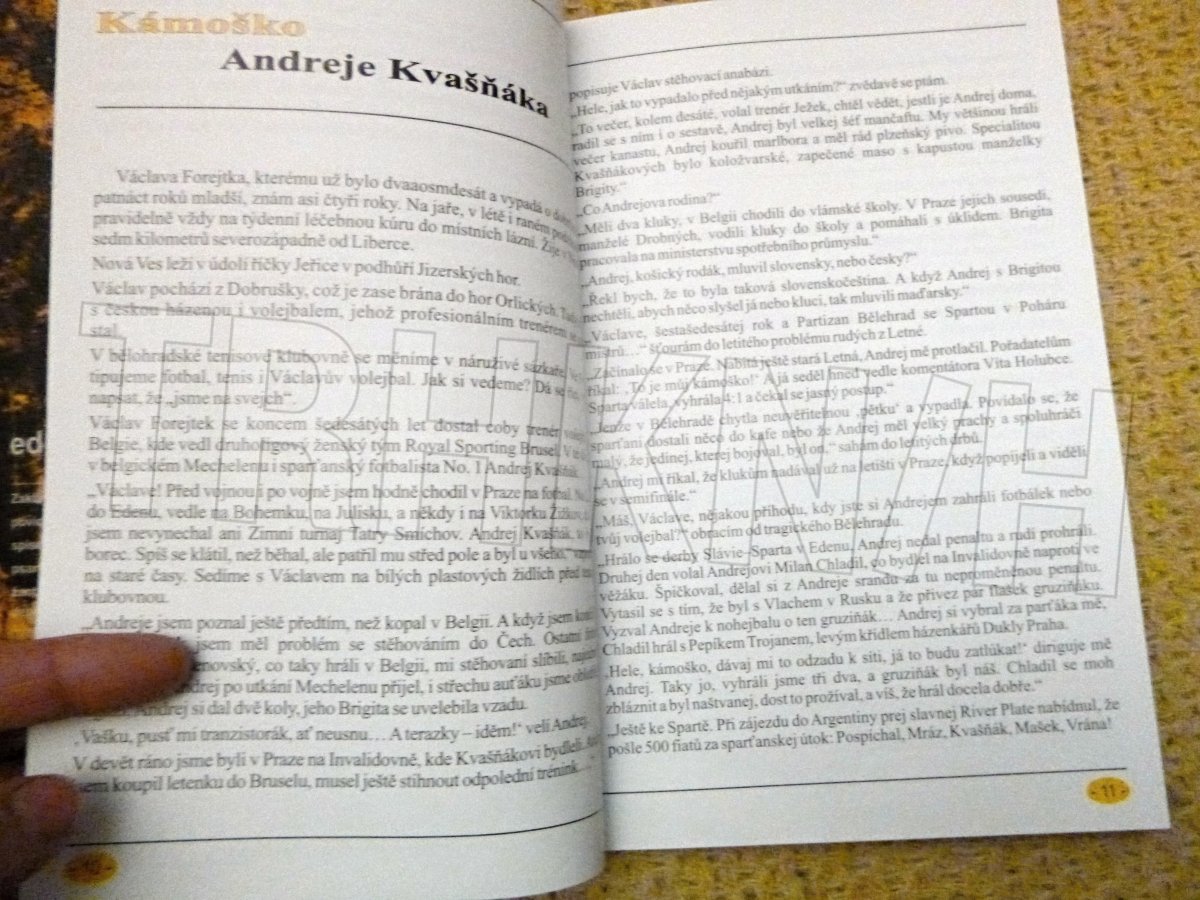 Kámoško
Andreje Kvašňáka
Václava Forejtka, kterému už bylo dvaaosmdesát a vypadá o
patnáct roků mladší, znám asi čtyři roky. Na jaře, v létě i raném
pravidelně vždy na týdenní léčebnou kúru do místních lázní. Žije v
sedm kilometrů severozápadně od Liberce.
Nová Ves leží v údolí říčky Jeřice v podhůří Jizerských hor.
Václav pochází z Dobrušky, což je zase brána do hor Orlických.
s českou házenou i volejbalem, jehož profesionálním trenérem se
stal.
V bělohradské tenisové klubovně se měníme v náruživé sázkaře.
tipujeme fotbal, tenis i Václavův volejbal. Jak si vedeme? Dá se
napsat, že „jsme na svejch“.
Václav Forejtek se koncem šedesátých let dostal coby trenér
Belgie, kde vedl druholigový ženský tým Royal Sporting Brusel.
v belgickém Mechelenu i sparťanský fotbalista No. 1 Andrej Kvašňák.
„Václave! Před vojnou i po vojně jsem hodně chodil v Praze na fotbal.
do Edenu, vedle na Bohemku, na Julisku, a někdy i na Viktorku Žižkov,
jsem nevynechal ani Zimní turnaj Tatry Smíchov. Andrej Kvašňák, to
borec. Spíš se klátil, než běhal, ale patřil mu střed pole a byl u všeho,“
na staré časy. Sedíme s Václavem na bílých plastových židlích před
klubovnou.
„Andreje jsem poznal ještě předtím, než kopal v Belgii. A když jsem
jsem měl problém se stěhováním do Čech. Ostatní
enovský, co taky hráli v Belgii, mi stěhovaní slíbili,
drej po utkání Mechelenu přijel, i střechu auťáku jsme
Andrej si dal dvě koly, jeho Brigita se uvelebila vzadu.
‚Vašku, pusť mi tranzistorák, ať neusnu… A terazky – iděm!‘ velí Andrej.
V devět ráno jsme byli v Praze na Invalidovně, kde Kvašňákovi bydleli.
sem koupil letenku do Bruselu, musel ještě stihnout odpolední trénink…“
popisuje Václav stěhovací anabázi.
„Hele, jak to vypadalo před nějakým utkáním?“ zvědavě se ptám.
„To večer, kolem desáté, volal trenér Ježek, chtěl vědět, jestli je Andrej doma,
radil se s ním i o sestavě, Andrej byl velkej šéf mančaftu. My většinou hráli
večer kanastu, Andrej kouřil marlbora a měl rád plzeňský pivo. Specialitou
Kvašňákových bylo koložvarské, zapečené maso s kapustou manželky
Brigity.“
„Co Andrejova rodina?“
„Měli dva kluky, v Belgii chodili do vlámské školy. V Praze jejich sousedi,
manželé Drobných, vodili kluky do školy a pomáhali s úklidem. Brigita
pracovala na ministerstvu spotřebního průmyslu.“
„Andrej, košický rodák, mluvil slovensky, nebo česky?“
„Řekl bych, že to byla taková slovenskočeština. A když Andrej s Brigitou
nechtěli, abych něco slyšel já nebo kluci, tak mluvili maďarsky.“
„Václave, šestašedesátej rok a Partizan Bělehrad se Spartou v Poháru
mistrů…“ šťourám do letitého problému rudých z Letné.
„Začínalo se v Praze. Nabitá ještě stará Letná, Andrej mě protlačil. Pořadatelům
říkal: ‚To je můj kámoško!‘ A já seděl hned vedle komentátora Víta Holubce.
Sparta válela, vyhrála 4:1 a čekal se jasný postup.“
„Jenže v Bělehradě chytla neuvěřitelnou ‚pětku‘ a vypadla. Povídalo se, že
sparťani dostali něco do kafe nebo že Andrej měl velký prachy a spoluhráči
malý, že jedinej, kterej bojoval, byl on,“ sahám do letitých drbů.
„Andrej mi říkal, že klukům nadával už na letišti v Praze, když popíjeli a viděli
se v semifinále.“
„Máš, Václave, nějakou příhodu, kdy jste si Andrejem zahráli fotbálek nebo
tvůj volejbal?“ obracím od tragického Bělehradu.
„Hrálo se derby Slávie–Sparta v Edenu, Andrej nedal penaltu a rudí prohráli.
Druhej den volal Andrejovi Milan Chladil, co bydlel na Invalidovně naproti ve
věžáku. Špičkoval, dělal si z Andreje srandu za tu neproměněnou penaltu.
Vytasil se s tím, že byl s Vlachem v Rusku a že přivez pár flašek gruziňáku.
Vyzval Andreje k nohejbalu o ten gruziňák… Andrej si vybral za parťáka mě,
Chladil hrál s Pepíkem Trojanem, levým křídlem házenkářů Dukly Praha.
‚Hele, kámoško, dávaj mi to odzadu k síti, já to budu zatlúkat!‘ diriguje mě
Andrej. Taky jo, vyhráli jsme tři dva, a gruziňák byl náš. Chladil se moh
zbláznit a byl naštvanej, dost to prožíval, a víš, že hrál docela dobře.“
„Ještě ke Spartě. Při zájezdu do Argentiny prej slavnej River Plate nabídnul, že
pošle 500 fiatů za sparťanskej útok: Pospíchal, Mráz, Kvašňák, Mašek, Vrána!
- 11 -